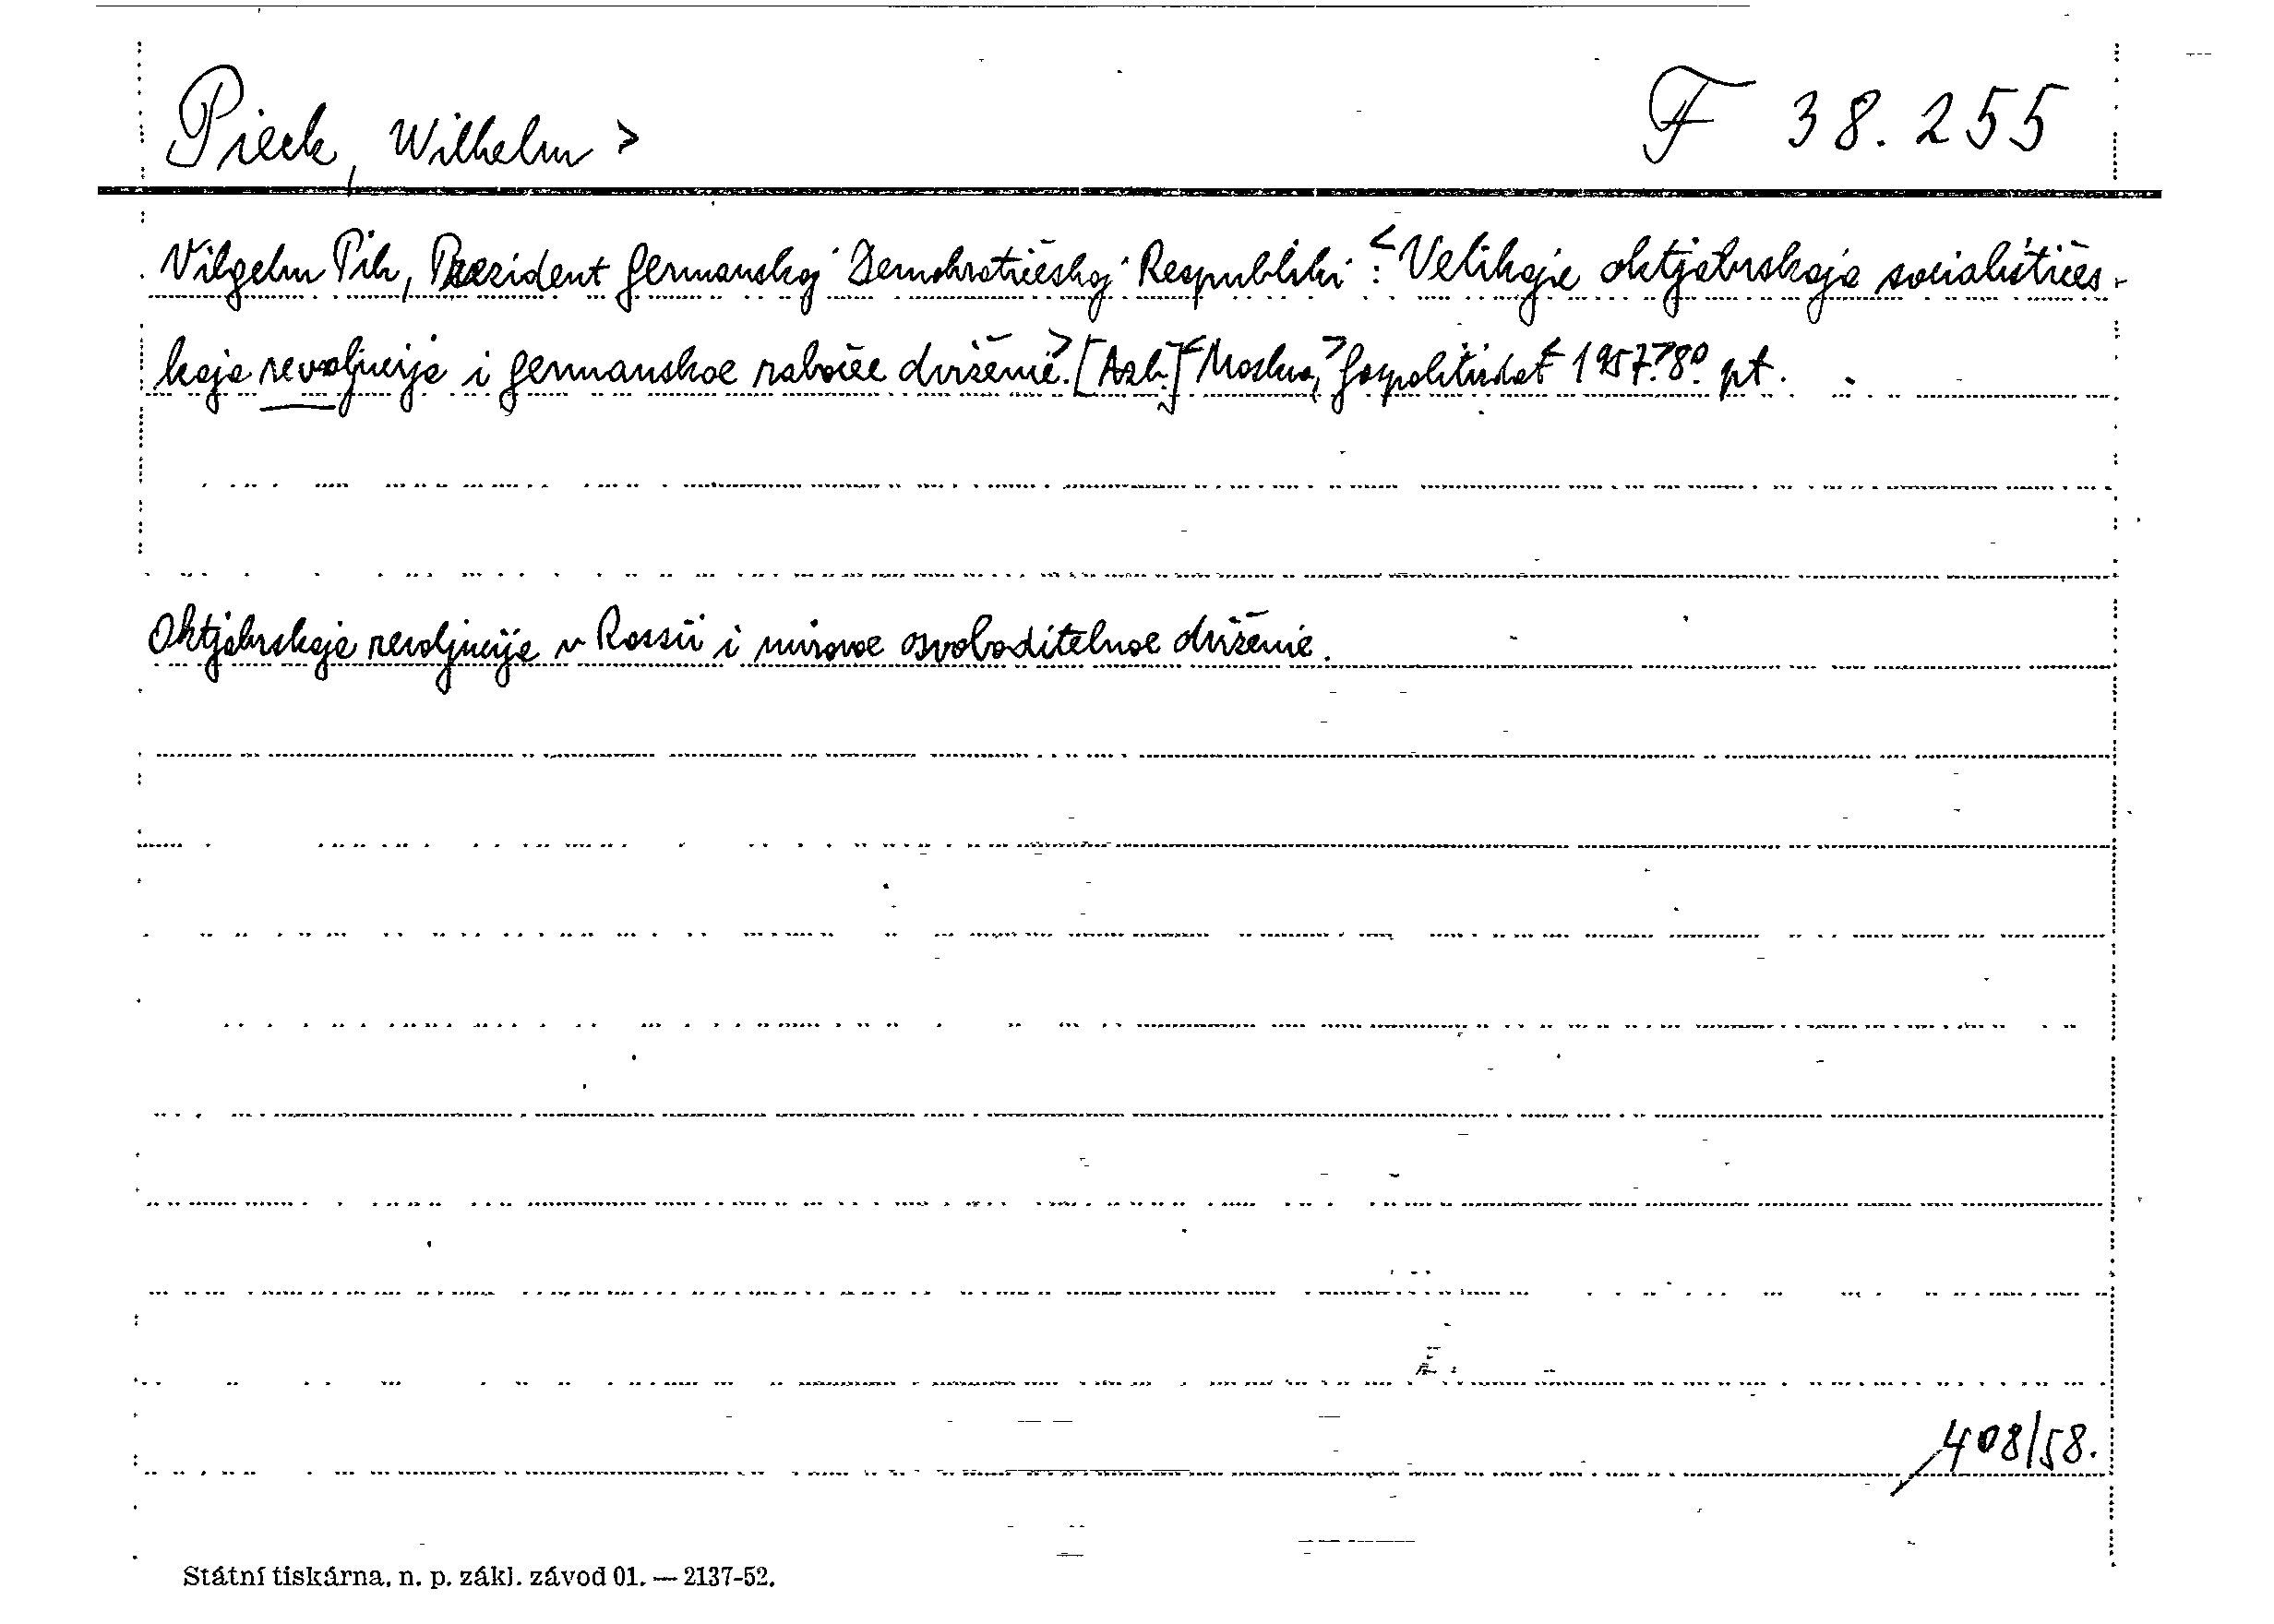 Pieck, Wilhelm > F 38.255
Vilgelm Pik, Prezident Germanskoj Demokratičeskoj Respubliki :< Velikaja oktjabrskaja socialističes-
kaja revoljucija i germanskoe rabočee dviženie.> [Azb.] <Moskva,> Gospolitizdat <1957.> 8° pt.
Oktjabrskaja revoljucija v Rossii i mirovoe osvoboditelnoe dviženie.
408/58.
Státní tiskárna, n. p. zákl. závod 01. — 2137-52.